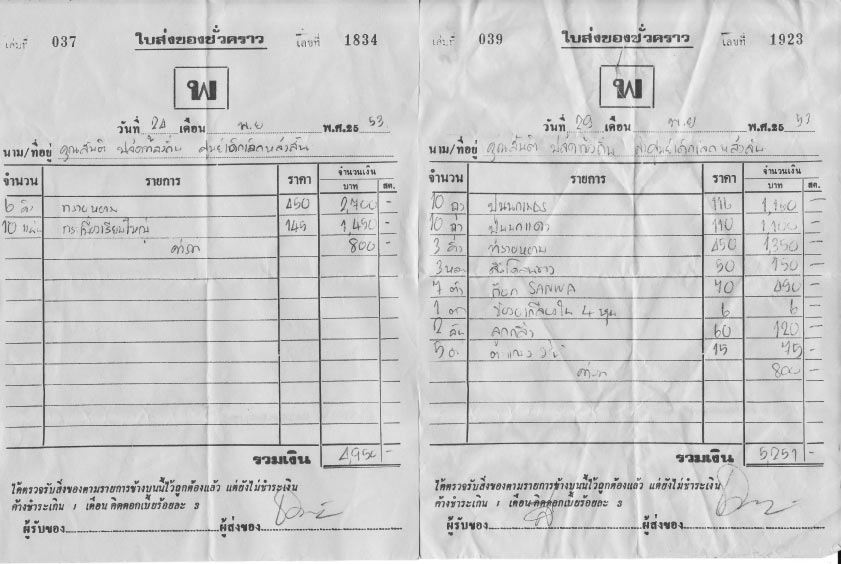 เล่มที่ 037 ใบส่งของชั่วคราว เลขที่ 1834
พ
วันที่ 24 เดือน พ.ย พ.ศ.25 53
นาม/ที่อยู่ คุณสันติ ศูนย์เด็กเล็ก
จำนวน รายการ ราคา จำนวนเงิน
บาท สต.
6 คิว ทรายหยาบ 450 2,700 -
10 แผ่น 145 1,450 -
800 -
รวมเงิน 4950 -
ได้ตรวจรับสิ่งของตามรายการข้างบนนี้ไว้ถูกต้องแล้ว แต่ยังไม่ชำระเงิน
ค้างชำระเกิน 1 เดือน คิดดอกเบี้ยร้อยละ 3
ผู้รับของ ผู้ส่งของ
เล่มที่ 039 ใบส่งของชั่วคราว เลขที่ 1923
พ
วันที่ 29 เดือน พ.ย พ.ศ.25 53
นาม/ที่อยู่ คุณสันติ ศูนย์เด็กเล็ก
จำนวน รายการ ราคา จำนวนเงิน
บาท สต.
10 ลูก 116 1,160 -
10 ลูก 110 1,100 -
3 คิว ทรายหยาบ 450 1350 -
3 50 150 -
7 ตัว ก๊อก SANWA 70 490 -
1 ตัว เกลียวใน 4 หุน 6 6 -
2 อัน ลูกกลิ้ง 60 120 -
5 15 75 -
800 -
รวมเงิน 5,251 -
ได้ตรวจรับสิ่งของตามรายการข้างบนนี้ไว้ถูกต้องแล้ว แต่ยังไม่ชำระเงิน
ค้างชำระเกิน 1 เดือน คิดดอกเบี้ยร้อยละ 3
ผู้รับของ ผู้ส่งของ